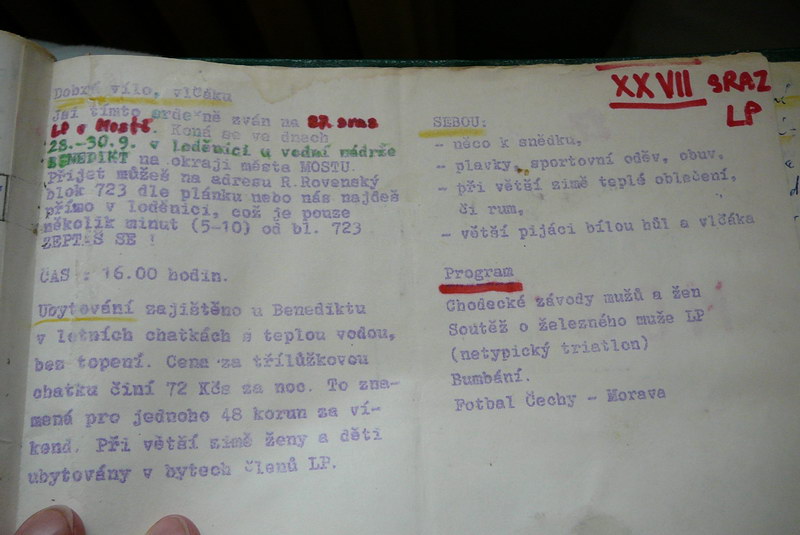 XXVII SRAZ
LP
Dobrý vílo, vlčáku
jsi tímto srdečně zván na 27. sraz
LP v Mostě. Koná se ve dnech
28.-30.9. v loděnici u vodní nádrže
BENEDIKT na okraji města MOSTU.
Přijet můžeš na adresu R.Rovenský
blok 723 dle plánku nebo nás najdeš
přímo v loděnici, což je pouze
několik minut (5-10) od bl. 723
ZEPTÁŠ SE !
ČAS : 16.00 hodin.
Ubytování zajištěno u Benediktu
v letních chatkách s teplou vodou,
bez topení. Cena za třílůžkovou
chatku činí 72 Kčs za noc. To zna-
mená pro jednoho 48 korun za ví-
kend. Při větší zimě ženy a děti
ubytovány v bytech členů LP.
SEBOU:
- něco k snědku,
- plavky, sportovní oděv, obuv,
- při větší zimě teplé oblačení,
či rum,
- větší pijáci bílou hůl a vlčáka
Program
Chodecké závody mužů a žen
Soutěž o železného muže LP
(netypický triatlon)
Bumbání.
Fotbal Čechy - Morava